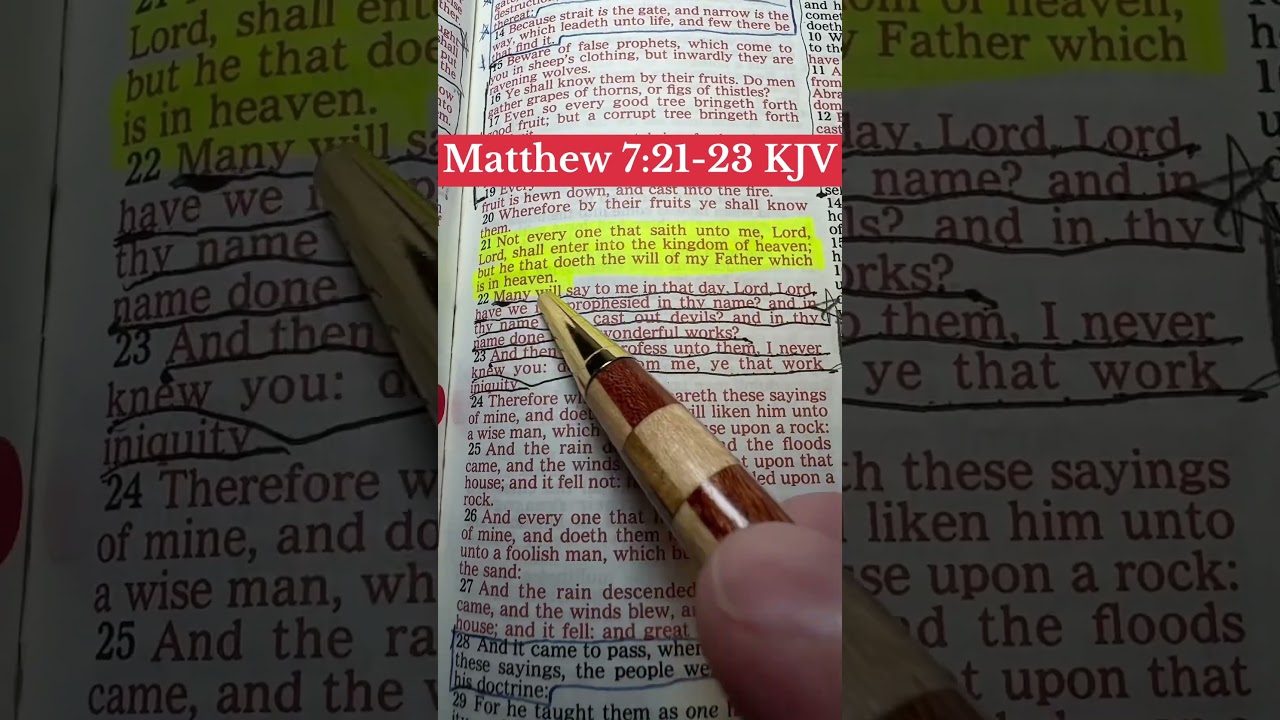 destruction,
thereat:
14 Because strait is the gate, and narrow is the
way, which leadeth unto life, and few there be
that find it.
15 Beware of false prophets, which come to
you in sheep's clothing, but inwardly they are
ravening wolves.
16 Ye shall know them by their fruits. Do men
gather grapes of thorns, or figs of thistles?
17 Even so every good tree bringeth forth
good fruit; but a corrupt tree bringeth forth
Matthew 7:21-23 KJV
19 Every
fruit is hewn down, and cast into the fire.
20 Wherefore by their fruits ye shall know
them.
21 Not every one that saith unto me, Lord,
Lord, shall enter into the kingdom of heaven;
but he that doeth the will of my Father which
is in heaven.
22 Many will say to me in that day, Lord, Lord,
have we prophesied in thy name? and in
thy name cast out devils? and in thy
name done wonderful works?
23 And then profess unto them, I never
knew you: from me, ye that work
iniquity
24 Therefore heareth these sayings
of mine, and doeth will liken him unto
a wise man, which house upon a rock:
25 And the rain and the floods
came, and the winds upon that
house; and it fell not: founded upon a
rock.
26 And every one that
of mine, and doeth them
unto a foolish man, which
the sand:
27 And the rain descended
came, and the winds blew,
house; and it fell: and great
28 And it came to pass, when
these sayings, the people
his doctrine:
29 For he taught them as one
Lord, shall enter
but he that doe
is in heaven.
22 Many will sa
have we
thy name
name done
23 And then
knew you:
iniquity
24 Therefore w
of mine, and do
a wise man, wh
25 And the ra
came, and the
of heaven,
Father which
day, Lord, Lord,
name? and in
ls? and in thy
orks?
them, I never
ye that work
th these sayings
liken him unto
se upon a rock:
nd the floods
t upon that